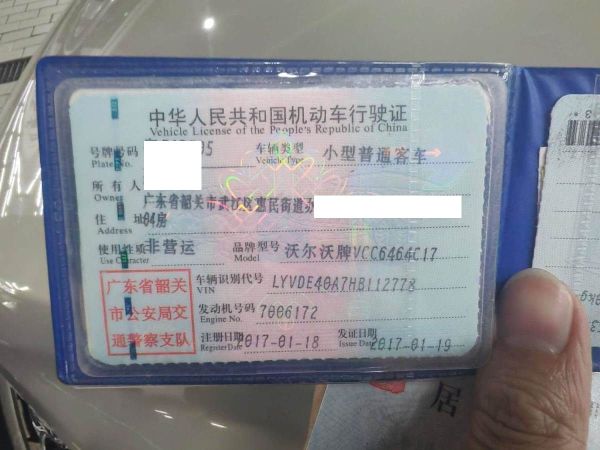 中华人民共和国机动车行驶证
Vehicle License of the People's Republic of China
号牌号码 95 车辆类型 小型普通客车
Plate No. Vehicle Type
所有人
Owner
住址 广东省韶关市武江区惠民街道办
04房
Address
使用性质 非营运 品牌型号 沃尔沃牌VCC6464C17
Use Character Model
广东省韶关
市公安局交
通警察支队
车辆识别代号 LYVDE40A7HB112778
VIN
发动机号码 7006172
Engine No.
注册日期 2017-01-18 发证日期 2017-01-19
Register Date Issue Date
居